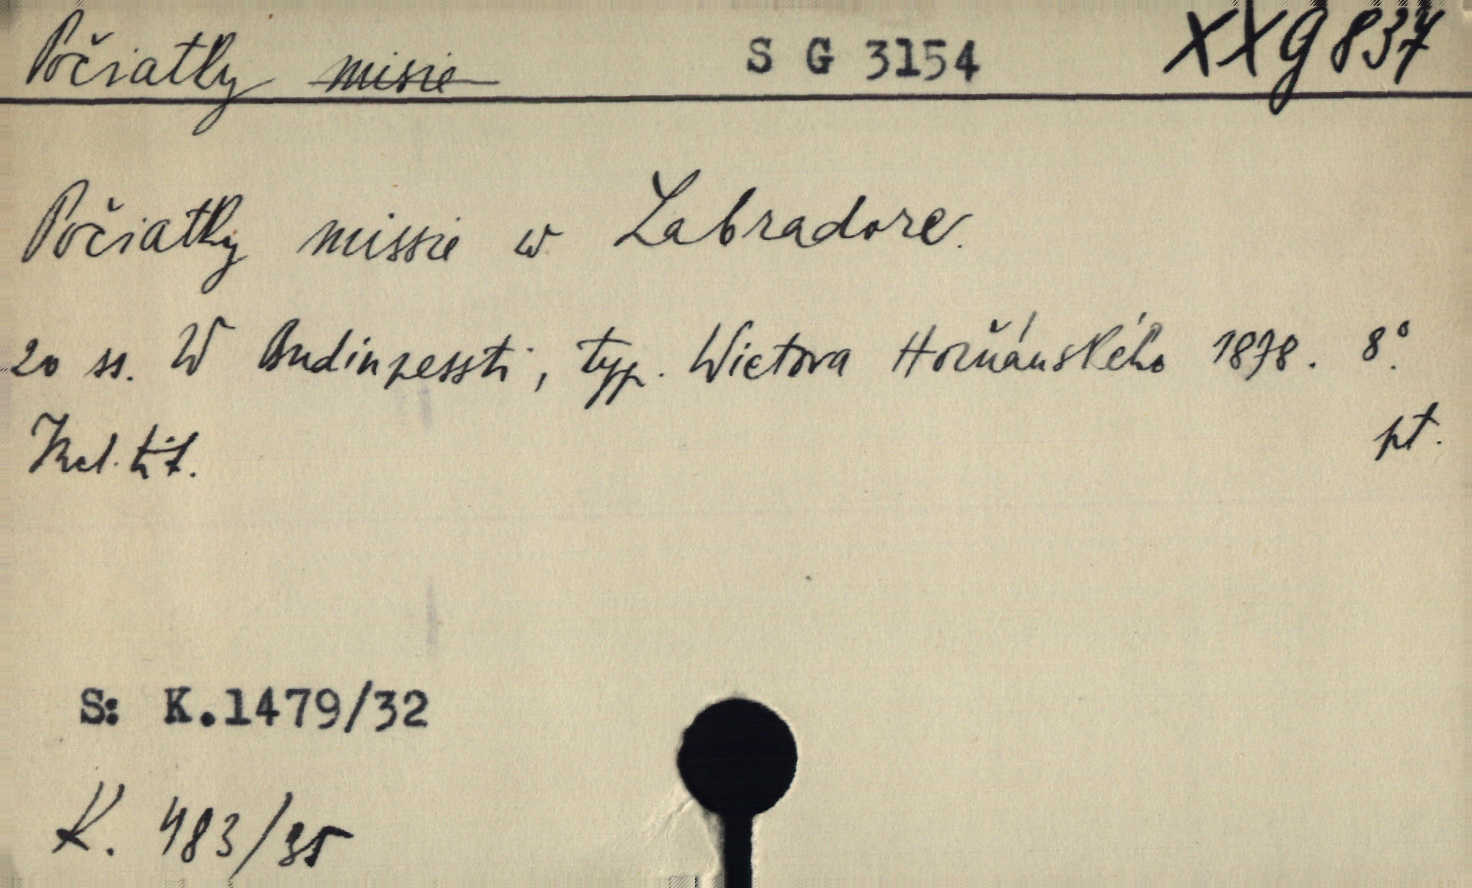 Počiatky misie S G 3154 XX G 837
Počiatky missie w Labradore.
20 ss. W Budínpessti, typ. Wictora Horňánského 1878. 8°.
Kat. tit. pt.
S: K.1479/32
K. 483/35